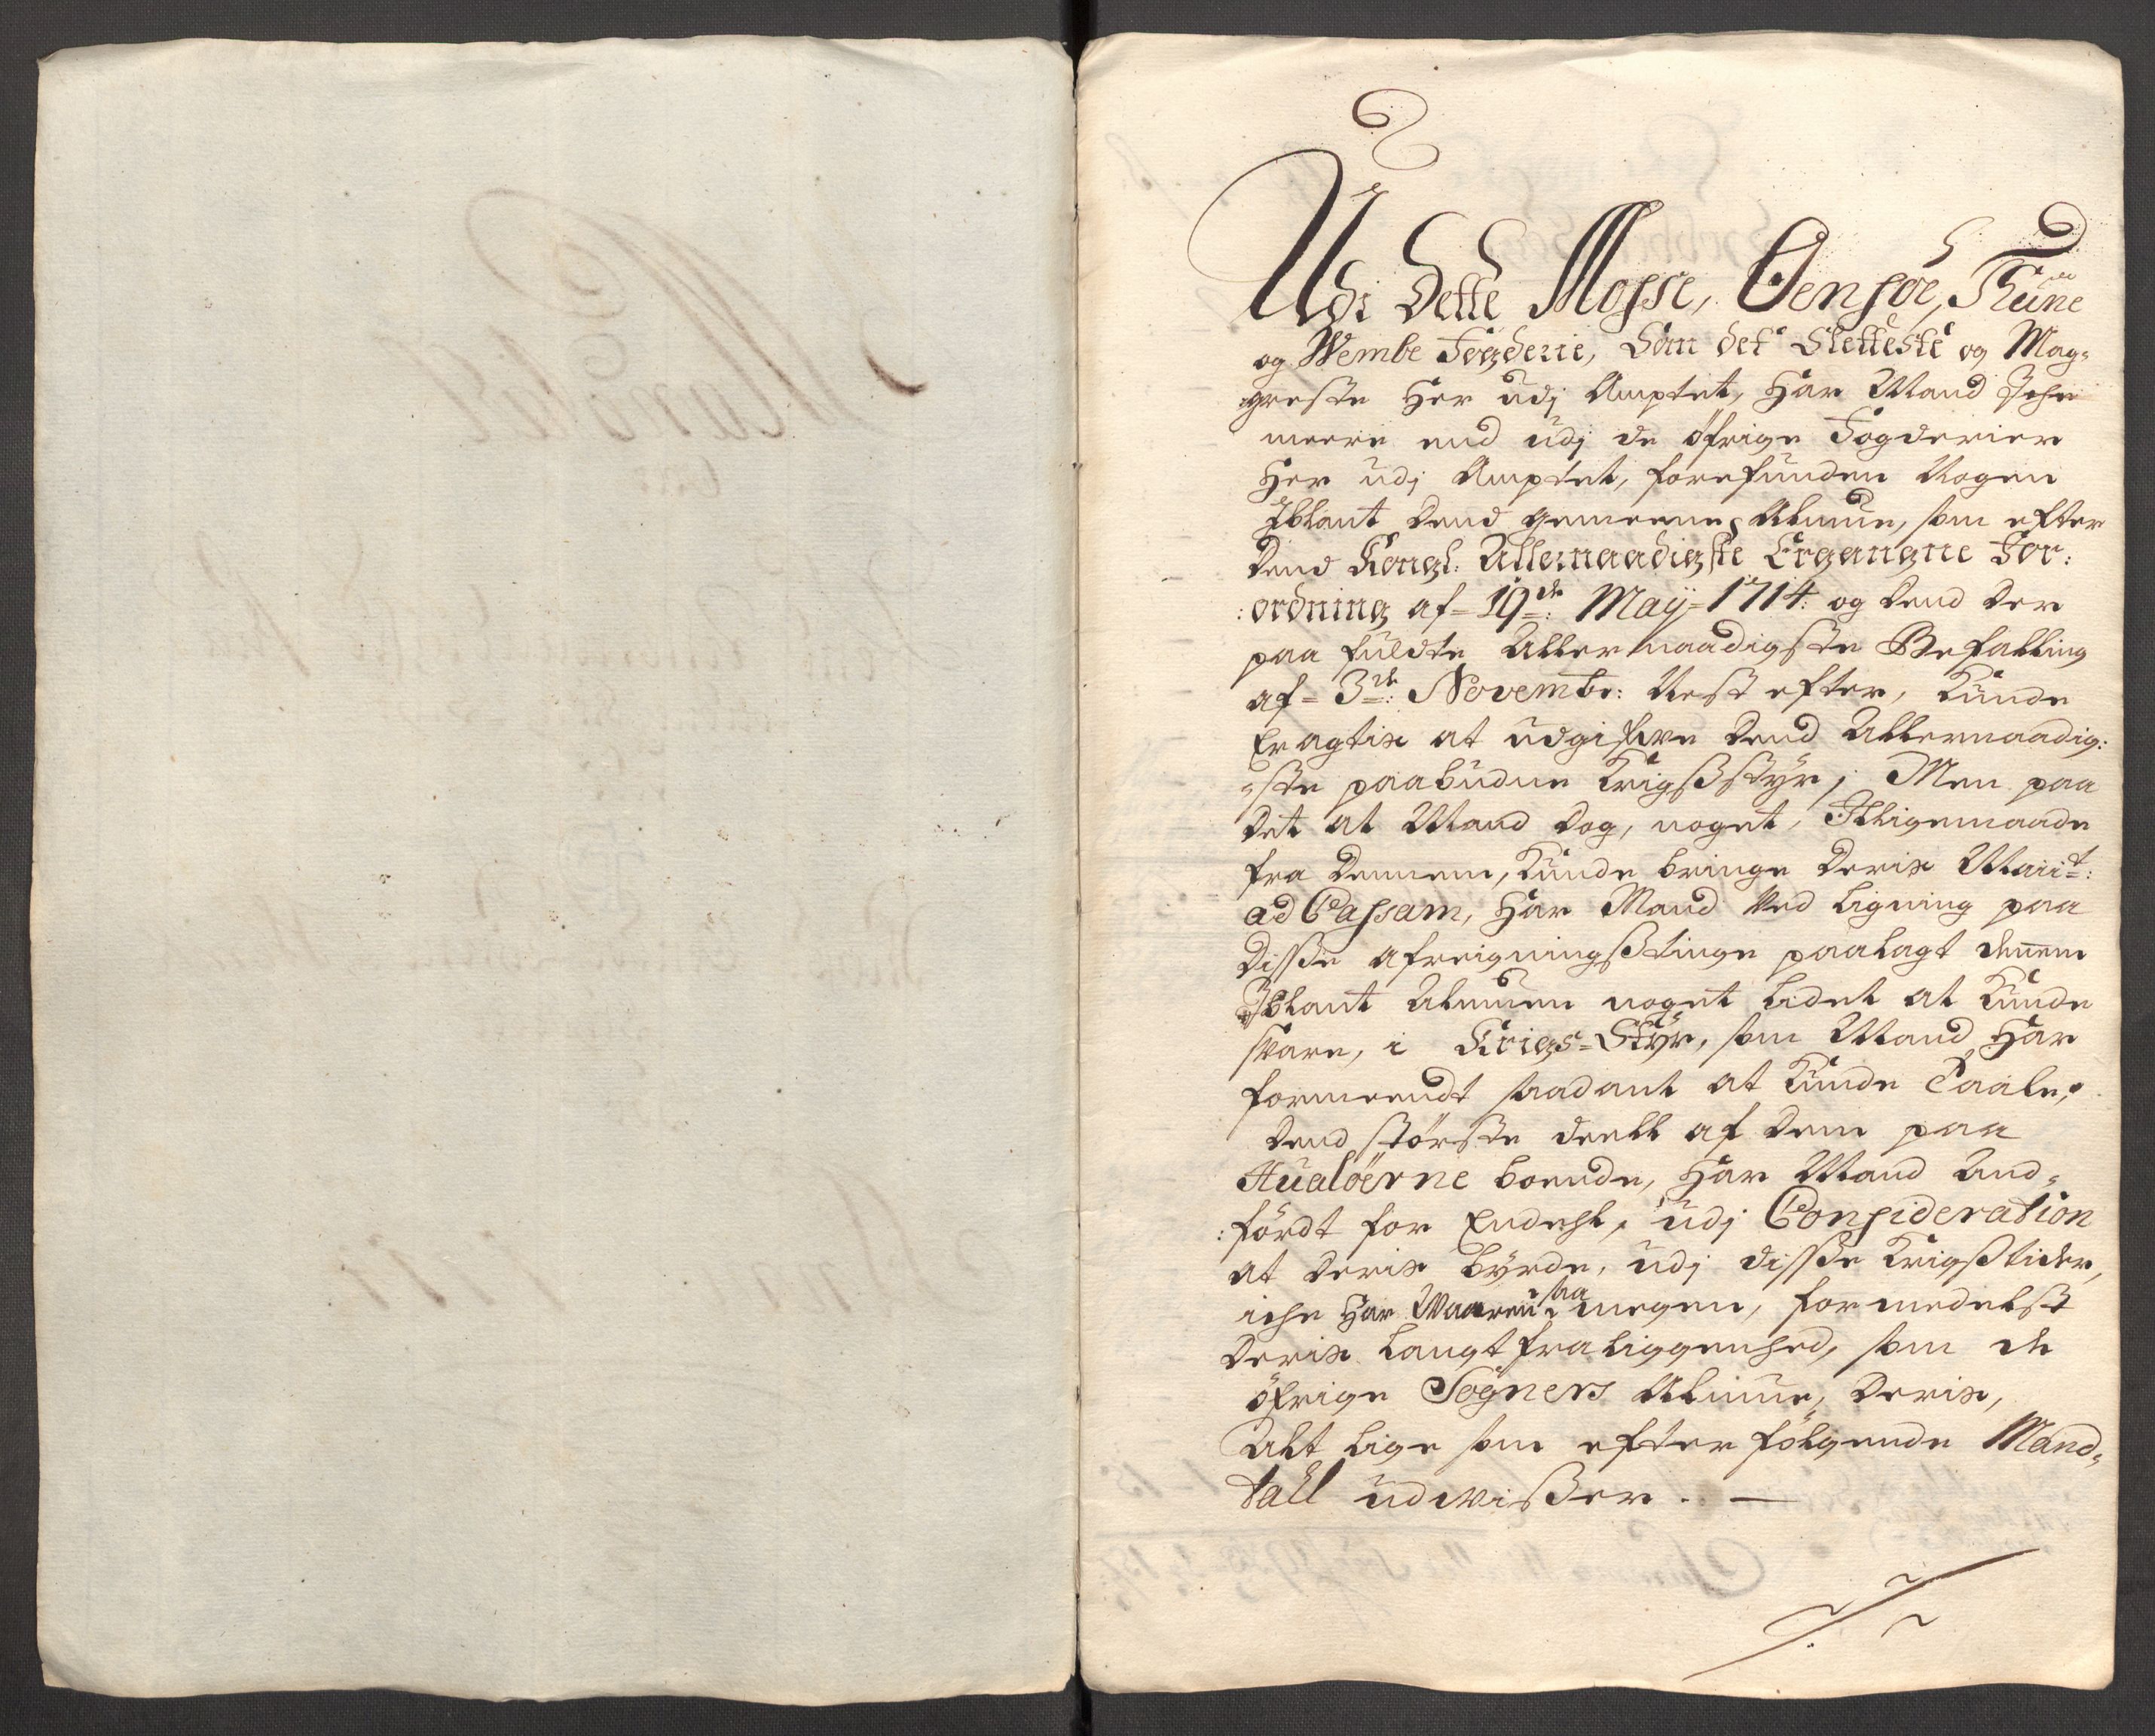 Udi dette Mosse, Oensøe, Thüne
og Wembe Fogderie, Som det Sletteste og Mag-
greste her udj Amptet, har Mand Iche
meere end udj de öfrige Fogderier
her udj Amptet, forefunden Nogen
Iblant dend gemeene Almue, som efter
dend Kongl: Allernaadigste Ergangne For:
:ordning af 19de: Maij 1714: og dend der
paa fuldte Allernaadigste Befalling
af 3de: Novembr: Nest efter, Kunde
Eragtis at udgifve dend Allernaadig:
ste paabudne Krigsstyr; Men paa
det at Mand dog, noget, Iligemaade
fra dennem, Kunde bringe deris Maiit:
ad Cassam, har Mand Ved ligning paa
disse afreigningstinge paalagt dennem
Iblant Almuen noget lidet at Kunde
svare, i Krigs-Styr, som Mand har
formeendt saadant at Kunde Taale;
dend störste deell af dem paa
Hualöerne boende, har Mand And-
:fördt for Endehl, udj Consideration
at deris byrde, udj disse Krigstider,
iche har Waaren saa megen, formedelst
deris langt fraliggenhed, som de
öfrige Sogners Almue, deris,
Alt lige som efterfölgende Mand-
tall udwisser. —